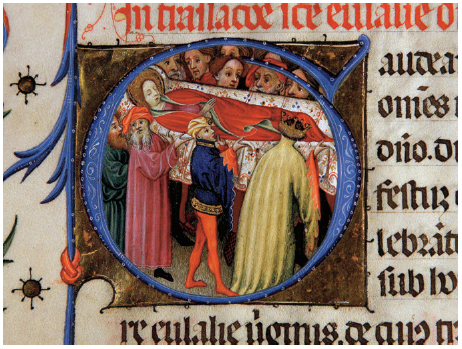 In traslacõe sce eulalie
Gaudea
omēs
dño. di
festuȝ c
lebrāt
sub ho
re eulalie ṽginis. de